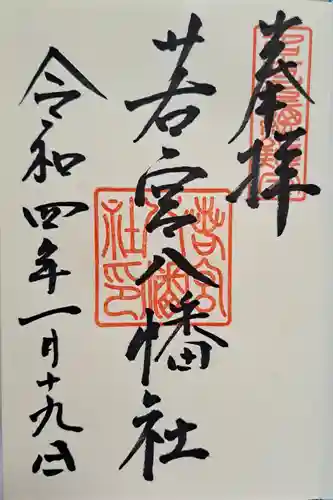 奉拝
若宮八幡社
令和四年一月十九日
若宮八幡社印